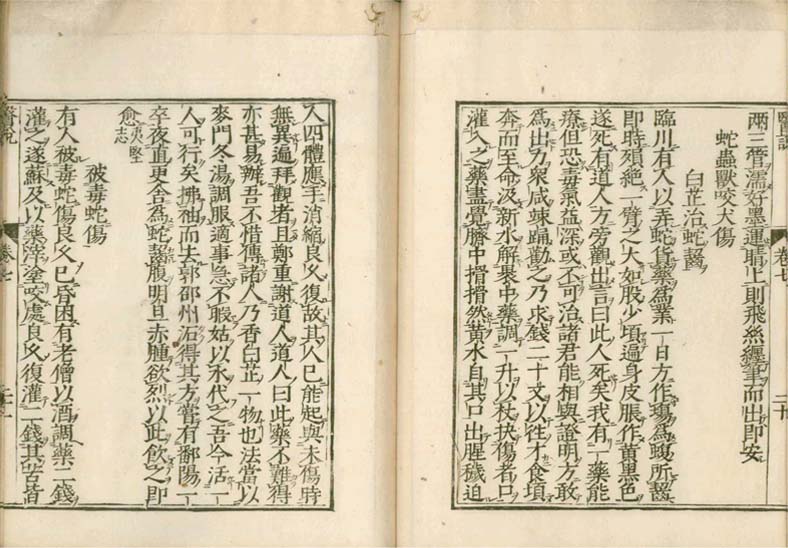 醫説
卷七
二十
兩三管濡好墨運睛上則飛絲纏筆而出即安
蛇蟲獸咬犬傷
白芷治蛇齧
臨川有人以弄蛇貨藥為業一日方作塲為蝮所齧
即時殞絶一臂之大如股少頃遍身皮脹作黄黒色
遂死有道人方旁觀出言曰此人死矣我有一藥能
療但恐毒氣益深或不可治諸君能相與證明方敢
為出力衆咸竦踊勸之乃求錢二十文以徃才食頃
奔而至命汲新水解裹中藥調一升以杖抉傷者口
灌入之藥盡覺臍中搰搰然黄水自其口出腥穢迫
人四體應手消縮良久復故其人已能起與未傷時
無異遍拜觀者且鄭重謝道人道人曰此藥不難得
亦甚易辦吾不惜傳諸人乃香白芷一物也法當以
麥門冬湯調服適事急不暇姑以水代之吾今活一
人可行矣拂袖而去郭邵州沰得其方嘗有鄱陽一
卒夜直更舍為蛇齧腹明旦赤腫欲烈以此飲之即
愈夷堅志
被毒蛇傷
有人被毒蛇傷良久已昏困有老僧以酒調藥二錢
灌之遂蘇及以藥滓塗咬處良久復灌二錢其苦皆
醫説
卷七
二十一